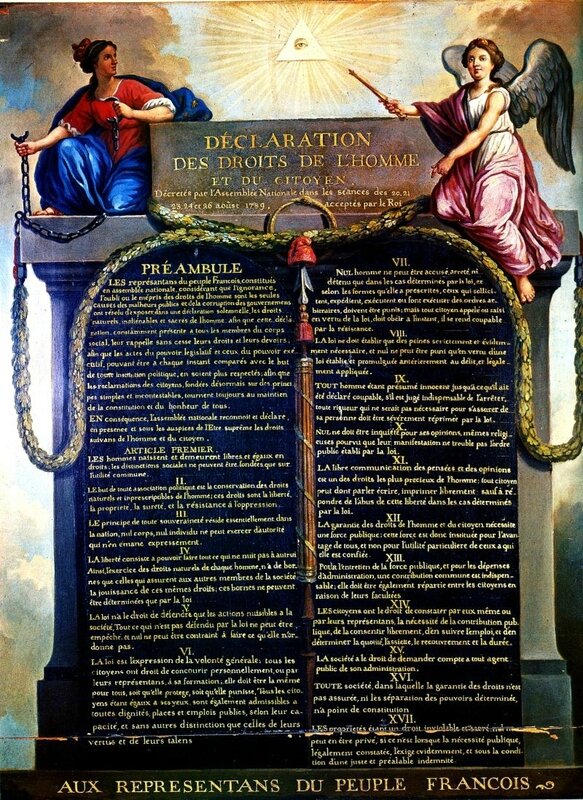 DÉCLARATION
DES DROITS DE L'HOMME
ET DU CITOYEN
Décretés par l'Assemblée Nationale dans les séances des 20, 21
23, 24 et 26 août 1789, acceptés par le Roi
PRÉAMBULE
LES représentans du peuple Francois, constitués
en assemblée nationale, considérant que l'ignorance,
l'oubli ou le mépris des droits de l'homme sont les seules
causes des malheurs publics et de la corruption des gouvernemens
ont résolu d'exposer dans une déclaration solemnelle, les droits
naturels, inaliénables et sacrés de l'homme; afin que cette décla
ration, constamment présente a tous les membres du corps
social, leur rappelle sans cesse leurs droits et leurs devoirs;
afin que les actes du pouvoir legislatif et ceux du pouvoir exé
cutif, pouvant être a chaque instant comparés avec le but
de toute institution politique, en soient plus respectés; afin que
les reclamations des citoyens, fondées désormais sur des princi
pes simples et incontestables, tournent toujours au maintien
de la constitution et du bonheur de tous.
EN conséquence, l'assemblée nationale reconnoit et déclare,
en presence et sous les auspices de l'Etre suprême les droits
suivans de l'homme et du citoyen.
ARTICLE PREMIER.
LES hommes naissent et demeurent libres et égaux en
droits; les distinctions sociales ne peuvent être fondées que sur
l'utilité commune.
II.
LE but de toute association politique est la conservation des droits
naturels et imprescriptibles de l'homme; ces droits sont la liberté,
la propriété, la sureté, et la résistance à l'oppression.
III.
LE principe de toute souveraineté réside essentiellement dans
la nation, nul corps, nul individu ne peut exercer d'autorité
qui n'en émane expressement.
IV.
LA liberté consiste a pouvoir faire tout ce qui ne nuit pas à autrui
Ainsi, l'exercice des droits naturels de chaque homme, n'a de bor-
nes que celles qui assurent aux autres membres de la société
la jouissance de ces mêmes droits; ces bornes ne peuvent
être déterminées que par la loi
V.
LA loi n'a le droit de défendre que les actions nuisibles à la
société. Tout ce qui n'est pas défendu par la loi ne peut être
empêché, et nul ne peut être contraint à faire ce qu'elle n'or-
donne pas.
VI.
LA loi est l'expression de la volonté générale; tous les
citoyens ont droit de concourir personnellement, ou par
leurs représentans, à sa formation; elle doit être la même
pour tous, soit qu'elle protege, soit qu'elle punisse. Tous les cito
yens étant égaux a ses yeux, sont également admissibles a
toutes dignités, places et emplois publics, selon leur ca
pacité, et sans autres distinction que celles de leurs
vertus et de leurs talens
VII.
NUL homme ne peut être accusé, arreté, ni
détenu que dans les cas déterminés par la loi, et
selon les formes qu'elle a prescrites, ceux qui sollici
tent, expédient, exécutent ou font exécuter des ordres ar-
bitraires, doivent être punis; mais tout citoyen appelé ou saisi
en vertu de la loi, doit obéir a l'instant, il se rend coupable
par la résistance.
VIII.
LA loi ne doit établir que des peines strictement et évidem-
ment nécessaire, et nul ne peut être puni qu'en vertu d'une
loi établie et promulguée antérierement au délit, et légale-
ment appliquée.
IX.
TOUT homme étant présumé innocent jusqu'a ce qu'il ait
été déclaré coupable, s'il est jugé indispensable de l'arrêter,
toute rigueur qui ne serait pas nécessaire pour s'assurer de
sa personne doit être sévèrement réprimée par la loi.
X.
NUL ne doit être inquiété pour ses opinions, mêmes religi
euses pourvu que leur manifestation ne trouble pas l'ordre
public établi par la loi.
XI.
LA libre communication des pensées et des opinions
est un des droits les plus precieux de l'homme; tout citoyen
peut dont parler écrire, imprimer librement: sauf à ré-
pondre de l'abus de cette liberté dans les cas déterminés
par la loi.
XII.
LA garantie des droits de l'homme et du citoyen nécessite
une force publique; cette force est donc instituée pour l'avan-
tage de tous, et non pour l'utilité particuliere de ceux a qui
elle est confiée.
XIII.
Pour l'entretien de la force publique, et pour les dépenses
d'administration, une contribution commune est indispen-
sable; elle doit être également répartie entre les citoyens en
raison de leurs facultées
XIV.
LES citoyens ont le droit de constater par eux même ou
par leurs représentans, la nécessité de la contribution pub-
lique, de la consentir librement, d'en suivre l'emploi, et d'en
déterminer la quotité, l'assiette, le recouvrement et la durée.
XV.
LA société a le droit de demander compte a tout agent
public de son administration.
XVI.
TOUTE société, dans laquelle la garantie des droits n'est
pas assurée, ni la séparation des pouvoirs déterminée,
n'a point de constitution
XVII.
LES propriétés étant un droit inviolable et sacré, nul ne
peut en être privé, si ce n'est lorsque la nécessité publique,
légalement constatée, l'exige evidemment, et sous la condi
tion d'une juste et préalable indemnité.
AUX REPRESENTANS DU PEUPLE FRANCOIS